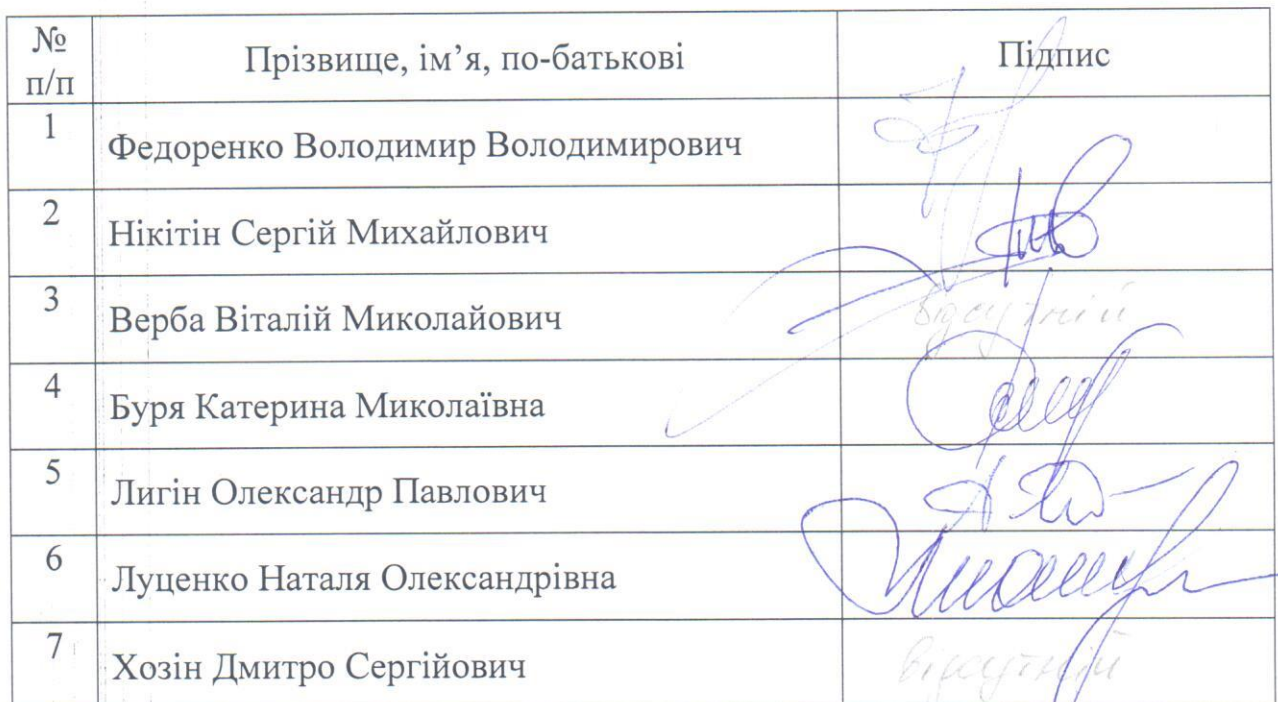 № п/п Прізвище, ім’я, по-батькові Підпис
1 Федоренко Володимир Володимирович
2 Нікітін Сергій Михайлович
3 Верба Віталій Миколайович відсутній
4 Буря Катерина Миколаївна
5 Лигін Олександр Павлович
6 Луценко Наталя Олександрівна
7 Хозін Дмитро Сергійович відсутній